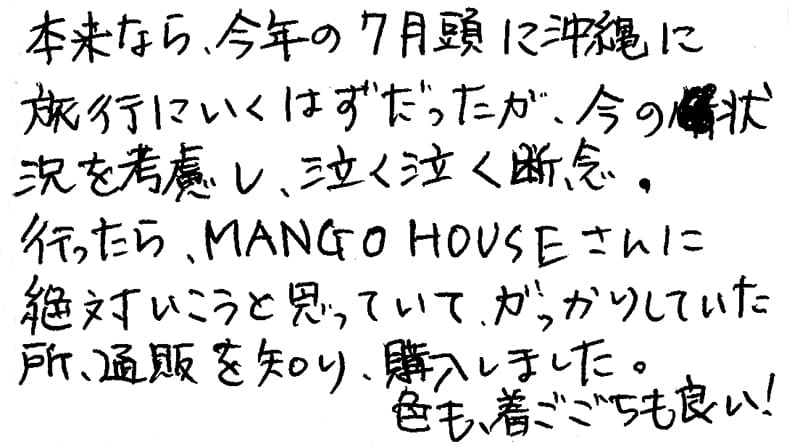 本来なら、今年の7月頭に沖縄に
旅行にいくはずだったが、今の状
況を考慮し、泣く泣く断念。
行ったら、MANGO HOUSEさんに
絶対いこうと思っていて、がっかりしていた
所、通販を知り、購入しました。
色も、着ごごちも良い!